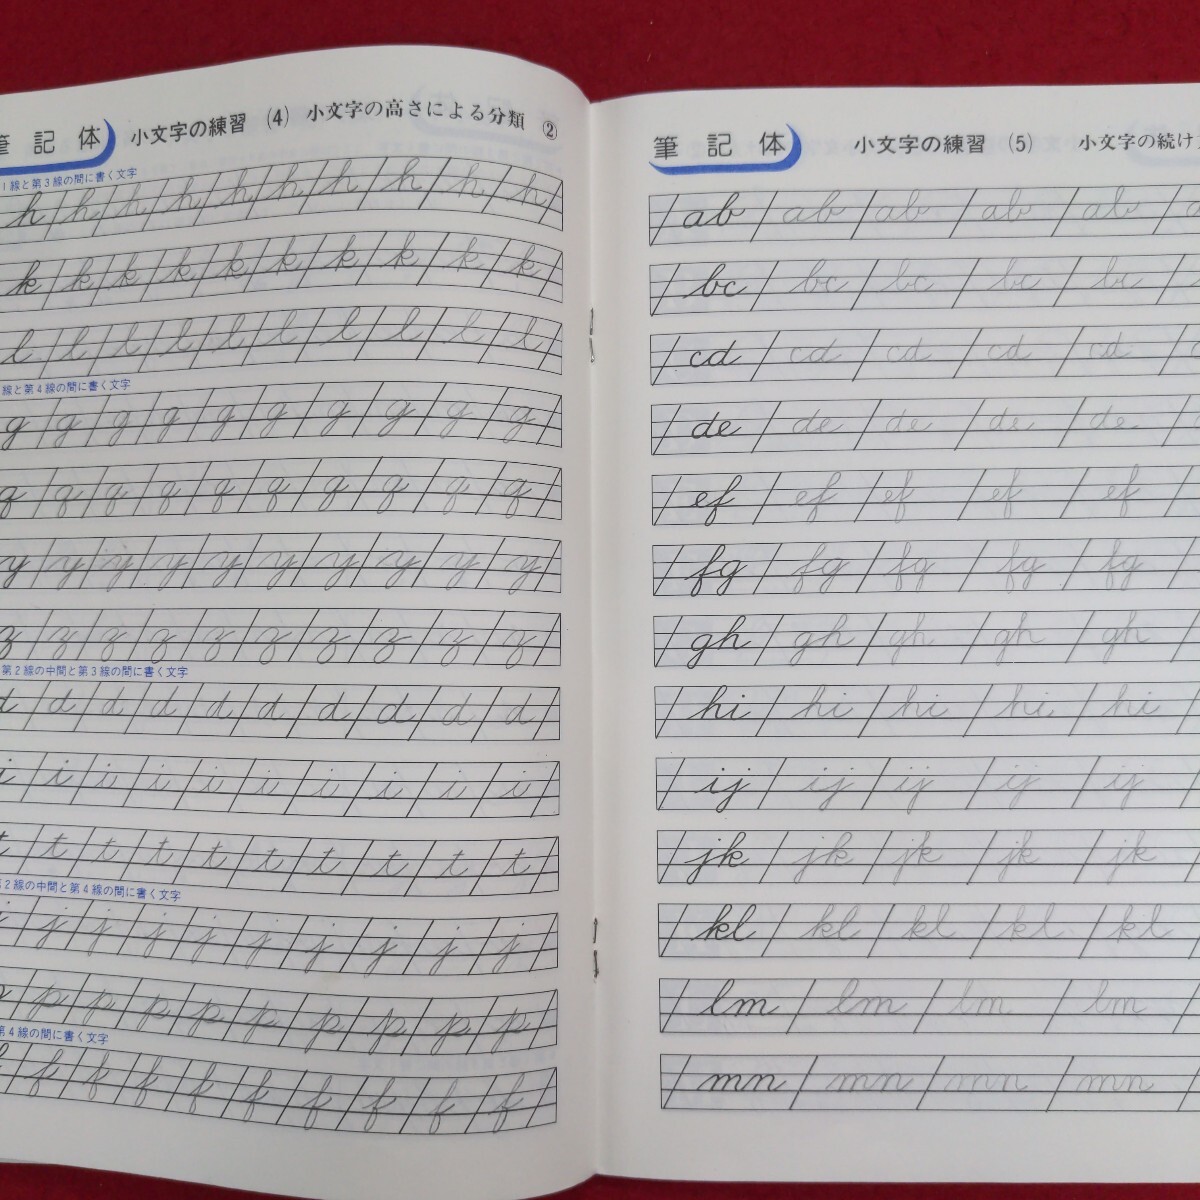 筆記体 小文字の練習 (4) 小文字の高さによる分類 ②
1線と第3線の間に書く文字
h h h h h h h h h h
k k k k k k k k k k
l l l l l l l l l l
線と第4線の間に書く文字
g g g g g g g g g g
q q q q q q q q q q
y y y y y y y y y y
z z z z z z z z z z
第2線の中間と第3線の間に書く文字
d d d d d d d d d d
i i i i i i i i i i
t t t t t t t t t t
第2線の中間と第4線の間に書く文字
j j j j j j j j j j
p p p p p p p p p p
第4線の間に書く文字
f f f f f f f f f f
筆記体 小文字の練習 (5) 小文字の続け
ab ab ab ab ab
bc bc bc bc bc
cd cd cd cd cd
de de de de de
ef ef ef ef ef
fg fg fg fg fg
gh gh gh gh gh
hi hi hi hi hi
ij ij ij ij ij
jk jk jk jk jk
kl kl kl kl kl
lm lm lm lm
mn mn mn mn